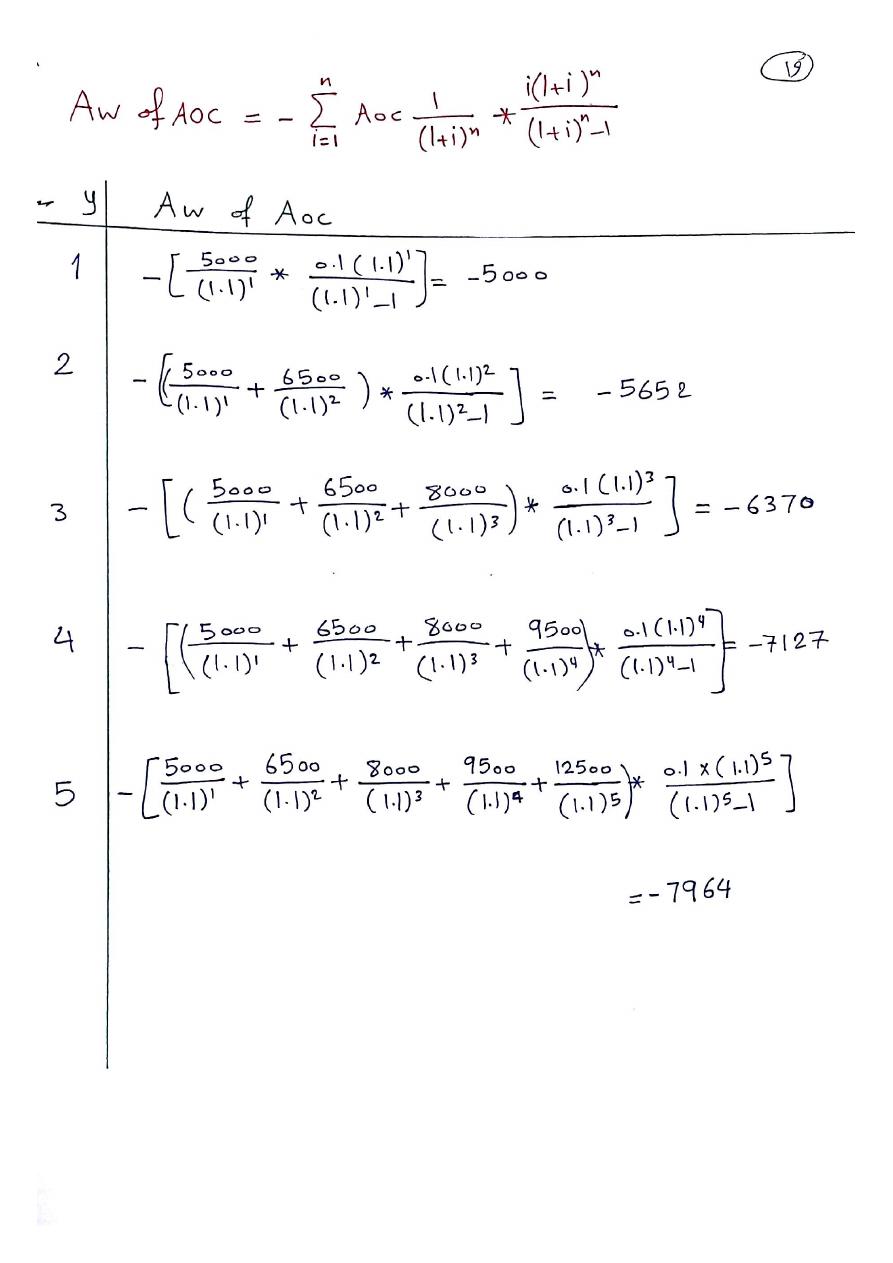 19
Aw of AOC = - n Σ i=1 Aoc 1/(1+i)^n * i(1+i)^n/((1+i)^n-1)
y Aw of Aoc
1 -[5000/(1.1)^1 * 0.1(1.1)^1/((1.1)^1-1)] = -5000
2 -[(5000/(1.1)^1 + 6500/(1.1)^2) * 0.1(1.1)^2/((1.1)^2-1)] = -5652
3 -[(5000/(1.1)^1 + 6500/(1.1)^2 + 8000/(1.1)^3) * 0.1(1.1)^3/((1.1)^3-1)] = -6370
4 -[(5000/(1.1)^1 + 6500/(1.1)^2 + 8000/(1.1)^3 + 9500/(1.1)^4) * 0.1(1.1)^4/((1.1)^4-1)] = -7127
5 -[5000/(1.1)^1 + 6500/(1.1)^2 + 8000/(1.1)^3 + 9500/(1.1)^4 + 12500/(1.1)^5) * 0.1×(1.1)^5/((1.1)^5-1)]
=-7964